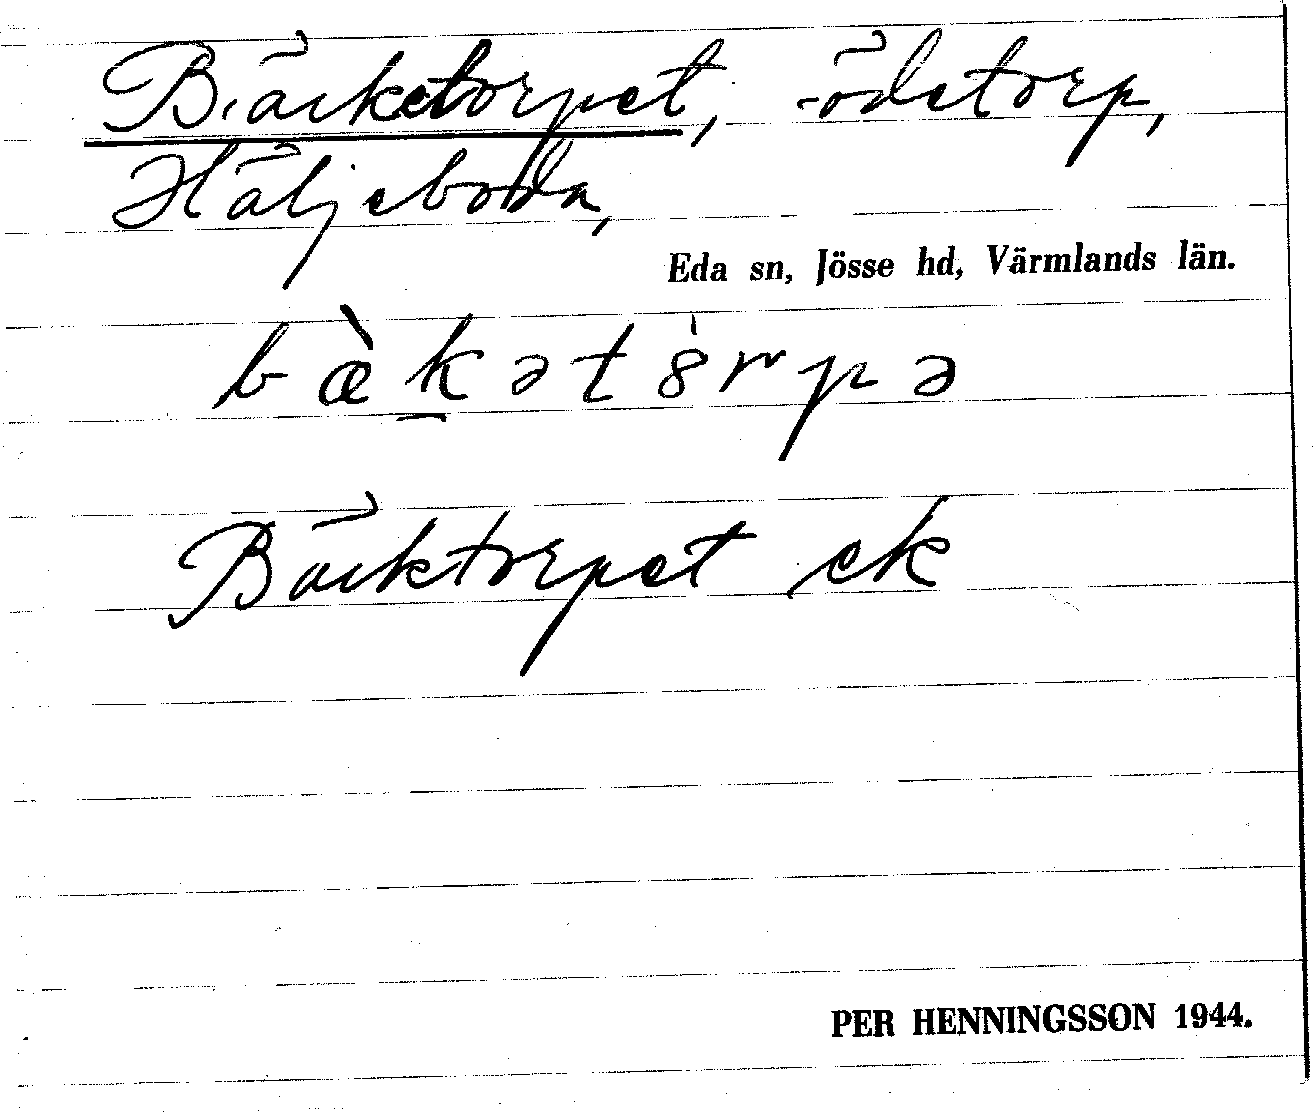 Bäcketorpet, ödetorp,
Häljeboda,
Eda sn, Jösse hd, Värmlands län.
bæ̀k̠ətȯ̀rpə
Bäcktorpet ek
PER HENNINGSSON 1944.